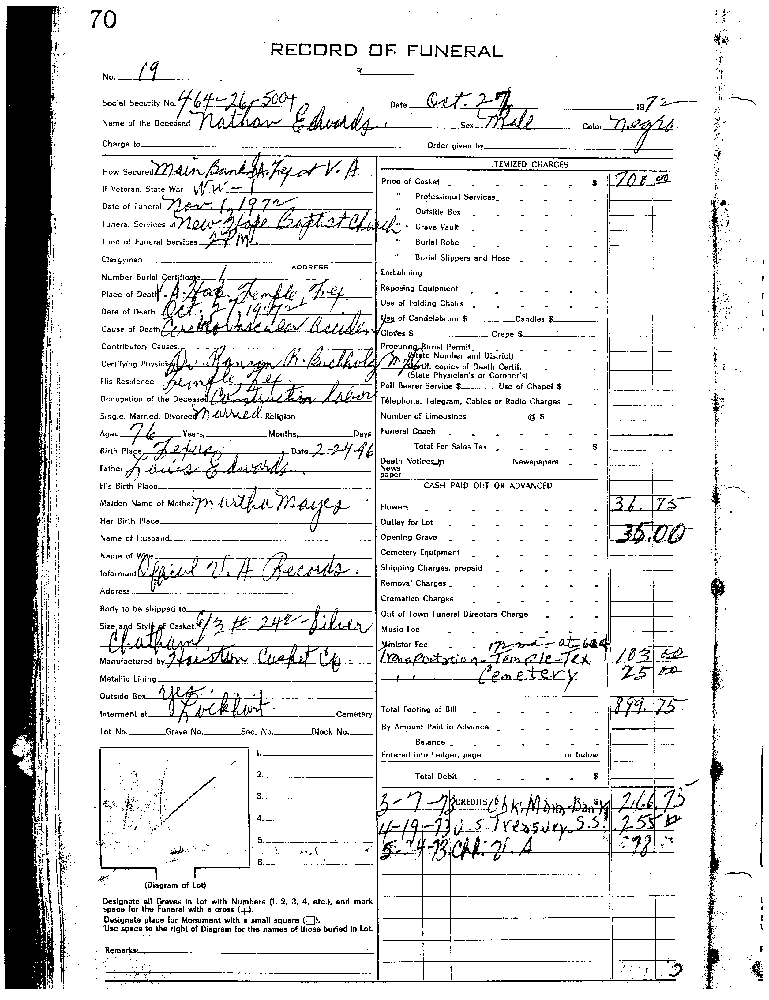 70
RECORD OF FUNERAL
No. 19
Social Security No. 464-26-5004 Date Oct. 27 1972
Name of the Deceased Nathan Edwards Sex Male Color Negro
Charge to Order given by
How Secured Main Bank V. A.
If Veteran, State War WW-1
Date of Funeral Nov 1, 1972
Funeral Services at New Hope Baptist Church
Time of Funeral Services 2 PM
Clergyman
ADDRESS
Number Burial Certificate
Place of Death V. A. Hosp. Temple, Tex
Date of Death Oct. 27, 1972
Cause of Death Accident
Contributory Causes
Certifying Physician Dr. R. Buchholz M.D.
His Residence Temple Tex.
Occupation of the Deceased Construction Labor
Single, Married, Divorced Married Religion
Aged 76 Years, Months, Days
Birth Place Texas Date 2-24-96
Father Louis Edwards
His Birth Place
Maiden Name of Mother Martha Mayes
Her Birth Place
Name of Husband
Name of Wife
Informant Official V. A Records.
Address
Body to be shipped to
Size and Style of Casket 6/3 # 242 - Silver
Chatham
Manufactured by Houston Casket Co
Metallic Lining
Outside Box yes
Interment at Lockhart Cemetery
Lot No. Grave No. Sec. No. Block No.
1.
2.
3.
4.
5.
6.
(Diagram of Lot)
Designate all Graves in Lot with Numbers (1, 2, 3, 4, etc.), and mark
space for the Funeral with a cross (+).
Designate place for Monument with a small square (□).
Use space to the right of Diagram for the names of those buried in Lot.
Remarks:
ITEMIZED CHARGES
Price of Casket $ 700 00
" Professional Services
" Outside Box
" Grave Vault
" Burial Robe
" Burial Slippers and Hose
Embalming
Reposing Equipment
Use of Folding Chairs
Use of Candelabrum $ Candles $
Gloves $ Crepe $
Procuring Burial Permit
(State Number and District)
Certif. copies of Death Certif.
(State Physician's or Coroner's)
Pall Bearer Service $ Use of Chapel $
Telephone, Telegram, Cables or Radio Charges
Number of Limousines @ $
Funeral Coach
Total For Sales Tax $
Death Notices in Newspapers
News
paper
CASH PAID OUT OR ADVANCED
Flowers 36.75
Outlay for Lot
Opening Grave 35.00
Cemetery Equipment
Shipping Charges, prepaid
Removal Charges
Cremation Charges
Out of Town Funeral Directors Charge
Music Fee
Minister Fee
Transportation - Temple - Tex 103 00
" " Cemetery 25 00
Total Footing of Bill 899.75
By Amount Paid in Advance
Balance
Entered into Ledger, page or below
Total Debit $
3-7-73 CREDITS Chk. Main Bank 266.75
4-19-73 U.S Treasury S.S. 255 00
Chk. V. A